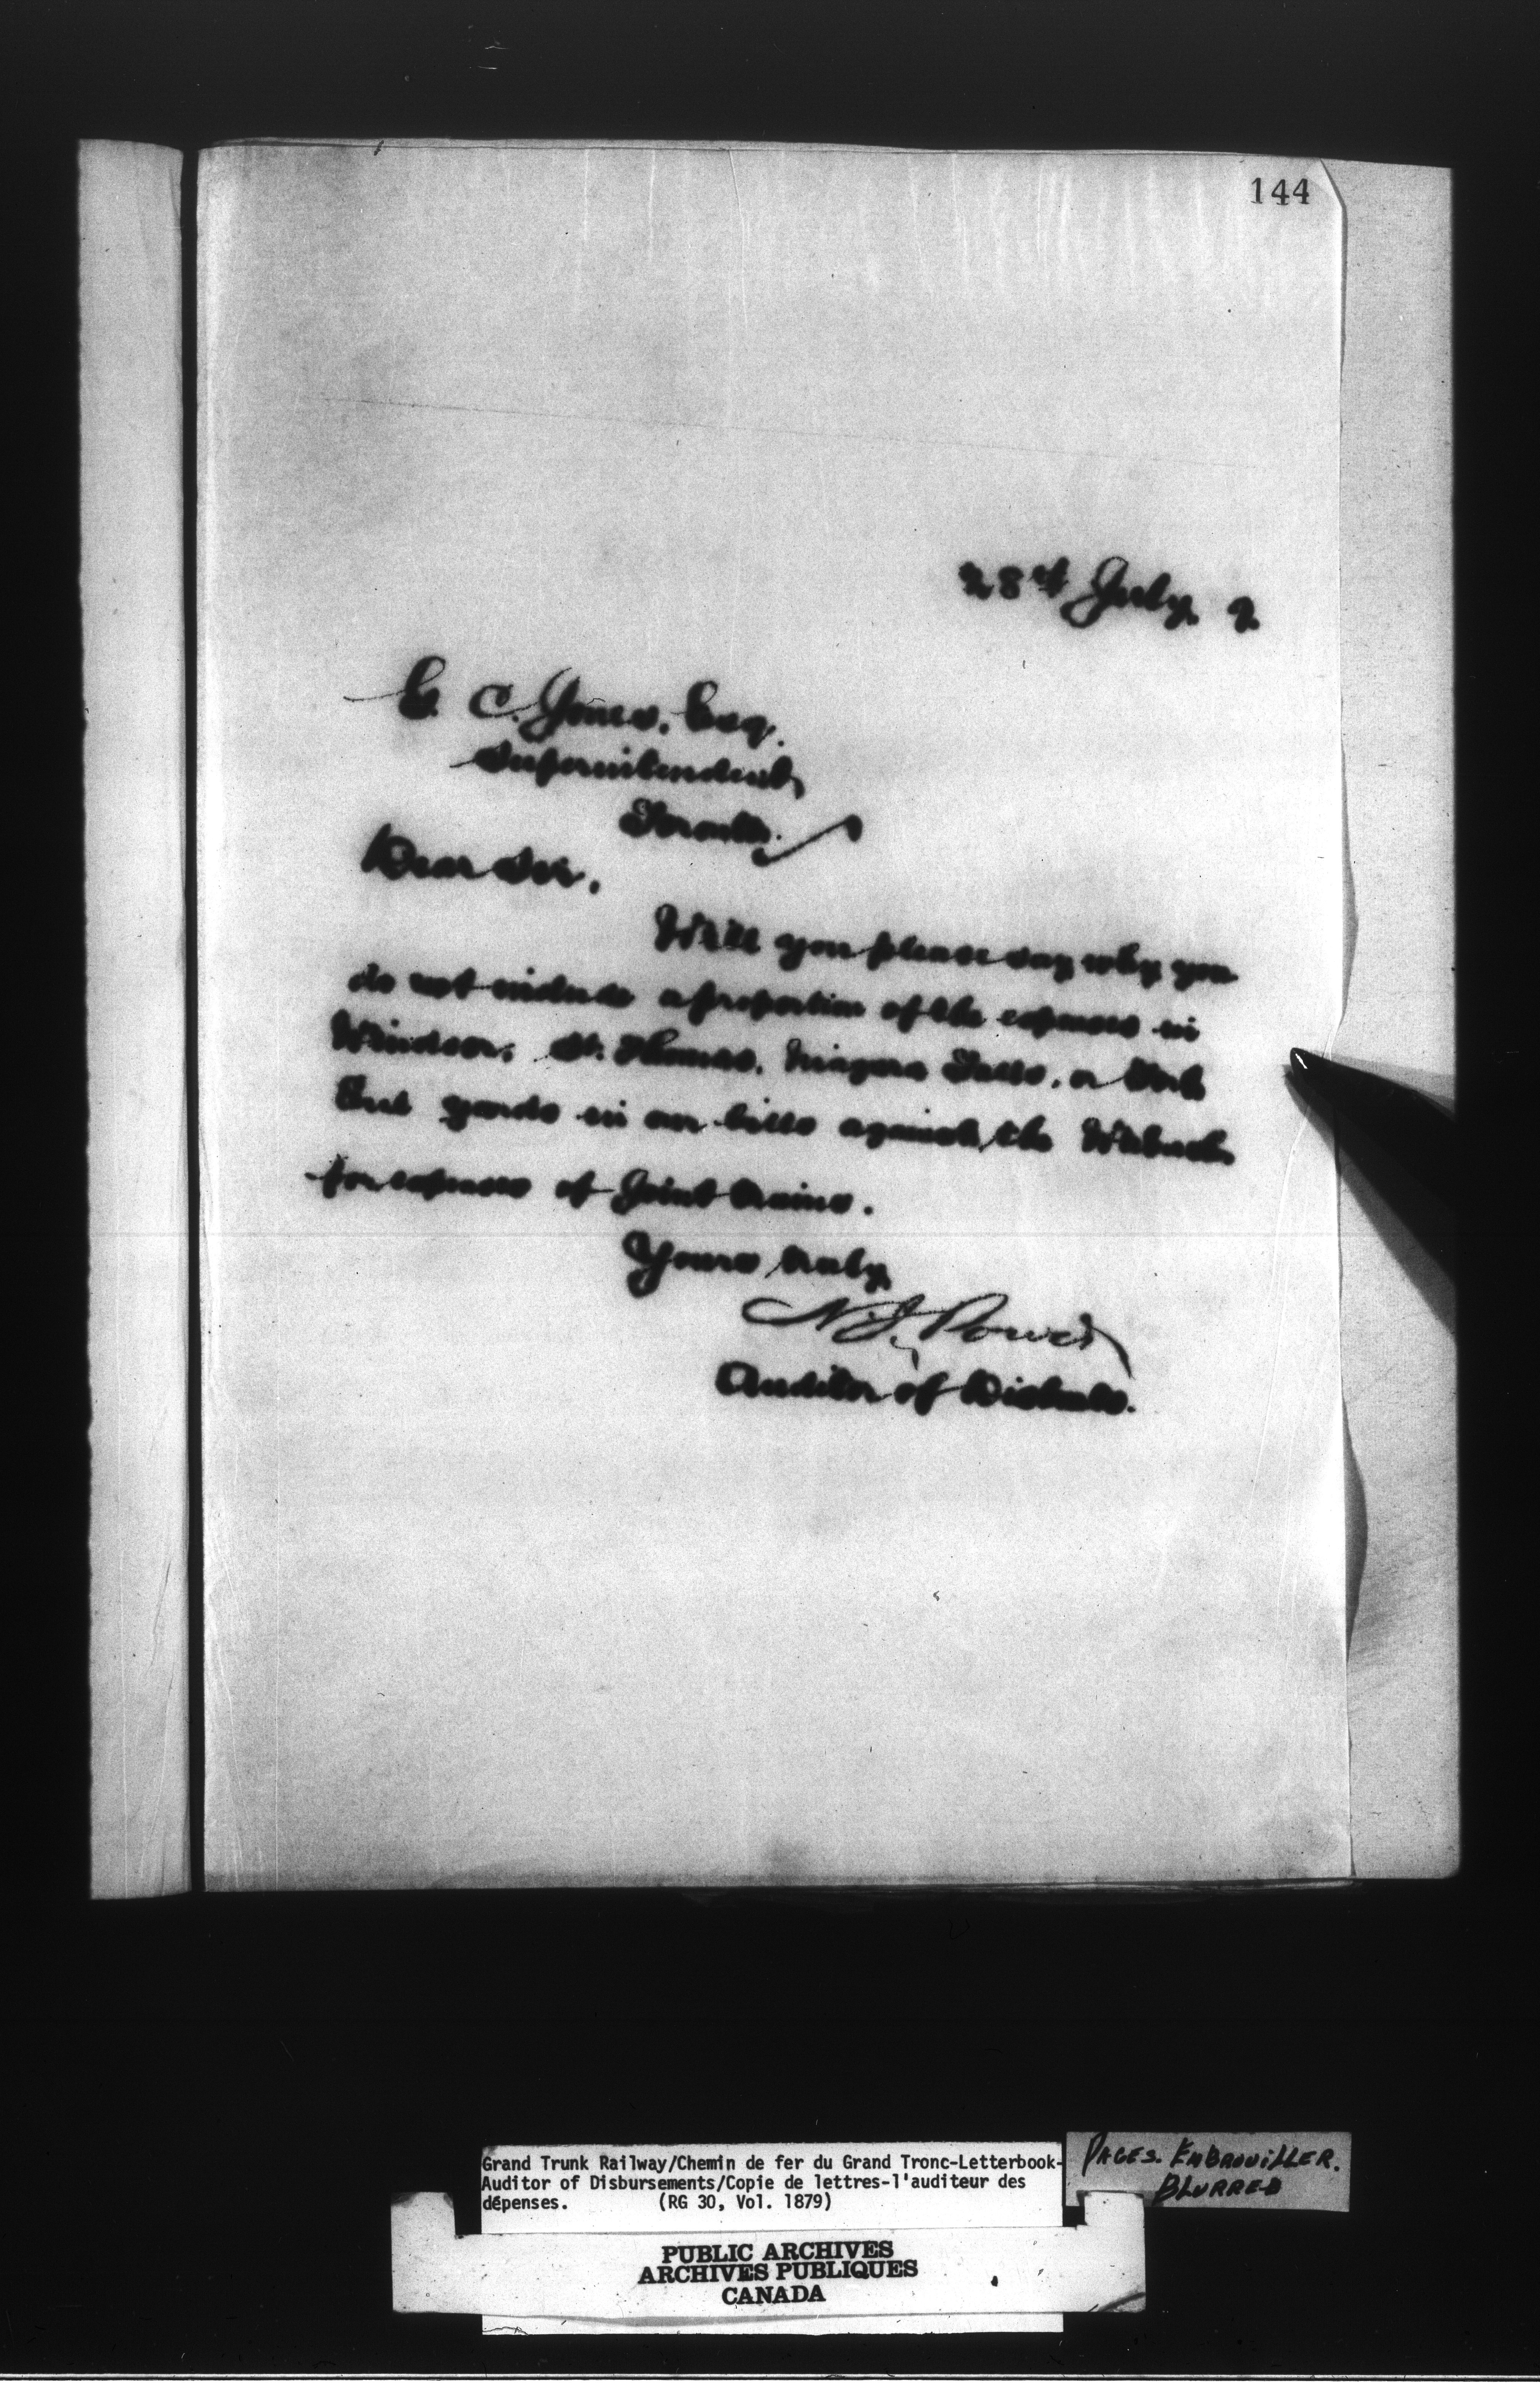 144
28th July, 9.
G. C. Jones, Esq.
Superintendent,
Toronto.
Dear Sir,
Will you please say why you
do not include a proportion of the expenses in
Windsor, St. Thomas, Niagara Falls, or Fort
Erie yards in our bills against the Wabash
for expenses of joint trains.
Yours truly,
N. J. Power
Auditor of Disbmts.
Grand Trunk Railway/Chemin de fer du Grand Tronc-Letterbook-
Auditor of Disbursements/Copie de lettres-l'auditeur des
dépenses. (RG 30, Vol. 1879)
PAGES. EMBROUILLER.
BLURRED
PUBLIC ARCHIVES
ARCHIVES PUBLIQUES
CANADA